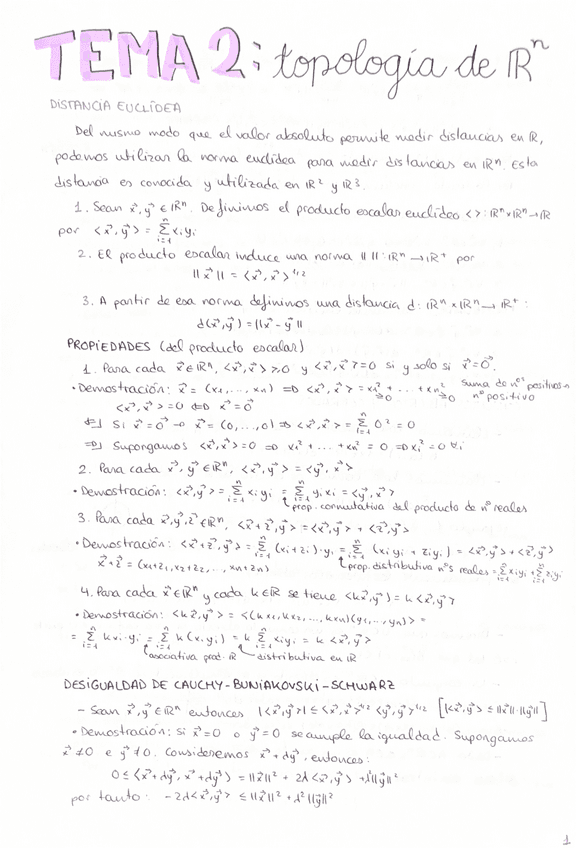 TEMA 2: topología de ℝⁿ
DISTANCIA EUCLÍDEA
Del mismo modo que el valor absoluto permite medir distancias en ℝ,
podemos utilizar la norma euclídea para medir distancias en ℝⁿ. Esta
distancia es conocida y utilizada en ℝ² y ℝ³.
1. Sean x⃗, y⃗ ∈ ℝⁿ. Definimos el producto escalar euclídeo < >: ℝⁿ×ℝⁿ → ℝ
por <x⃗, y⃗> = Σᵢ₌₁ⁿ xᵢyᵢ
2. El producto escalar induce una norma || ||: ℝⁿ → ℝ⁺ por
||x⃗|| = <x⃗, x⃗>^1/2
3. A partir de esa norma definimos una distancia d: ℝⁿ×ℝⁿ → ℝ⁺:
d(x⃗, y⃗) = ||x⃗ - y⃗||
PROPIEDADES (del producto escalar)
1. Para cada x⃗ ∈ ℝⁿ, <x⃗, x⃗> ≥ 0 y <x⃗, x⃗> = 0 si y solo si x⃗ = 0⃗
• Demostración: x⃗ = (x₁, ..., xₙ) ⇒ <x⃗, x⃗> = x₁² + ... + xₙ² suma de nºs positivos →
≥0 ≥0 nº positivo
<x⃗, x⃗> = 0 ⇔ x⃗ = 0⃗
⇐| Si x⃗ = 0⃗ → x⃗ = (0, ..., 0) ⇒ <x⃗, x⃗> = Σᵢ₌₁ⁿ 0² = 0
⇒| Supongamos <x⃗, x⃗> = 0 ⇒ x₁² + ... + xₙ² = 0 ⇒ xᵢ² = 0 ∀ᵢ
2. Para cada x⃗, y⃗ ∈ ℝⁿ, <x⃗, y⃗> = <y⃗, x⃗>
• Demostración: <x⃗, y⃗> = Σᵢ₌₁ⁿ xᵢyᵢ = Σᵢ₌₁ⁿ yᵢxᵢ = <y⃗, x⃗>
prop. conmutativa del producto de nº reales
3. Para cada x⃗, y⃗, z⃗ ∈ ℝⁿ, <x⃗+z⃗, y⃗> = <x⃗, y⃗> + <z⃗, y⃗>
• Demostración: <x⃗+z⃗, y⃗> = Σᵢ₌₁ⁿ (xᵢ+zᵢ)·yᵢ = Σᵢ₌₁ⁿ (xᵢyᵢ + zᵢyᵢ) = <x⃗, y⃗> + <z⃗, y⃗>
x⃗+z⃗ = (x₁+z₁, x₂+z₂, ..., xₙ+zₙ) prop. distributiva nºs reales = Σᵢ₌₁ⁿ xᵢyᵢ + Σᵢ₌₁ⁿ zᵢyᵢ
4. Para cada x⃗ ∈ ℝⁿ y cada k ∈ ℝ se tiene <kx⃗, y⃗> = k<x⃗, y⃗>
• Demostración: <kx⃗, y⃗> = <(kx₁, kx₂, ..., kxₙ)(y₁, ..., yₙ)> =
= Σᵢ₌₁ⁿ kxᵢ·yᵢ = Σᵢ₌₁ⁿ k(xᵢyᵢ) = k Σᵢ₌₁ⁿ xᵢyᵢ = k<x⃗, y⃗>
asociativa prod. ℝ distributiva en ℝ
DESIGUALDAD DE CAUCHY-BUNIAKOVSKI-SCHWARZ
- Sean x⃗, y⃗ ∈ ℝⁿ entonces |<x⃗, y⃗>| ≤ <x⃗, x⃗>^1/2 <y⃗, y⃗>^1/2 [|<x⃗, y⃗> ≤ ||x⃗||·||y⃗||]
• Demostración: si x⃗ = 0 o y⃗ = 0 se cumple la igualdad. Supongamos
x⃗ ≠ 0 e y⃗ ≠ 0. Consideremos x⃗ + λy⃗, entonces:
0 ≤ <x⃗+λy⃗, x⃗+λy⃗> = ||x⃗||² + 2λ<x⃗, y⃗> + λ²||y⃗||²
por tanto: -2λ<x⃗, y⃗> ≤ ||x⃗||² + λ²||y⃗||²
1